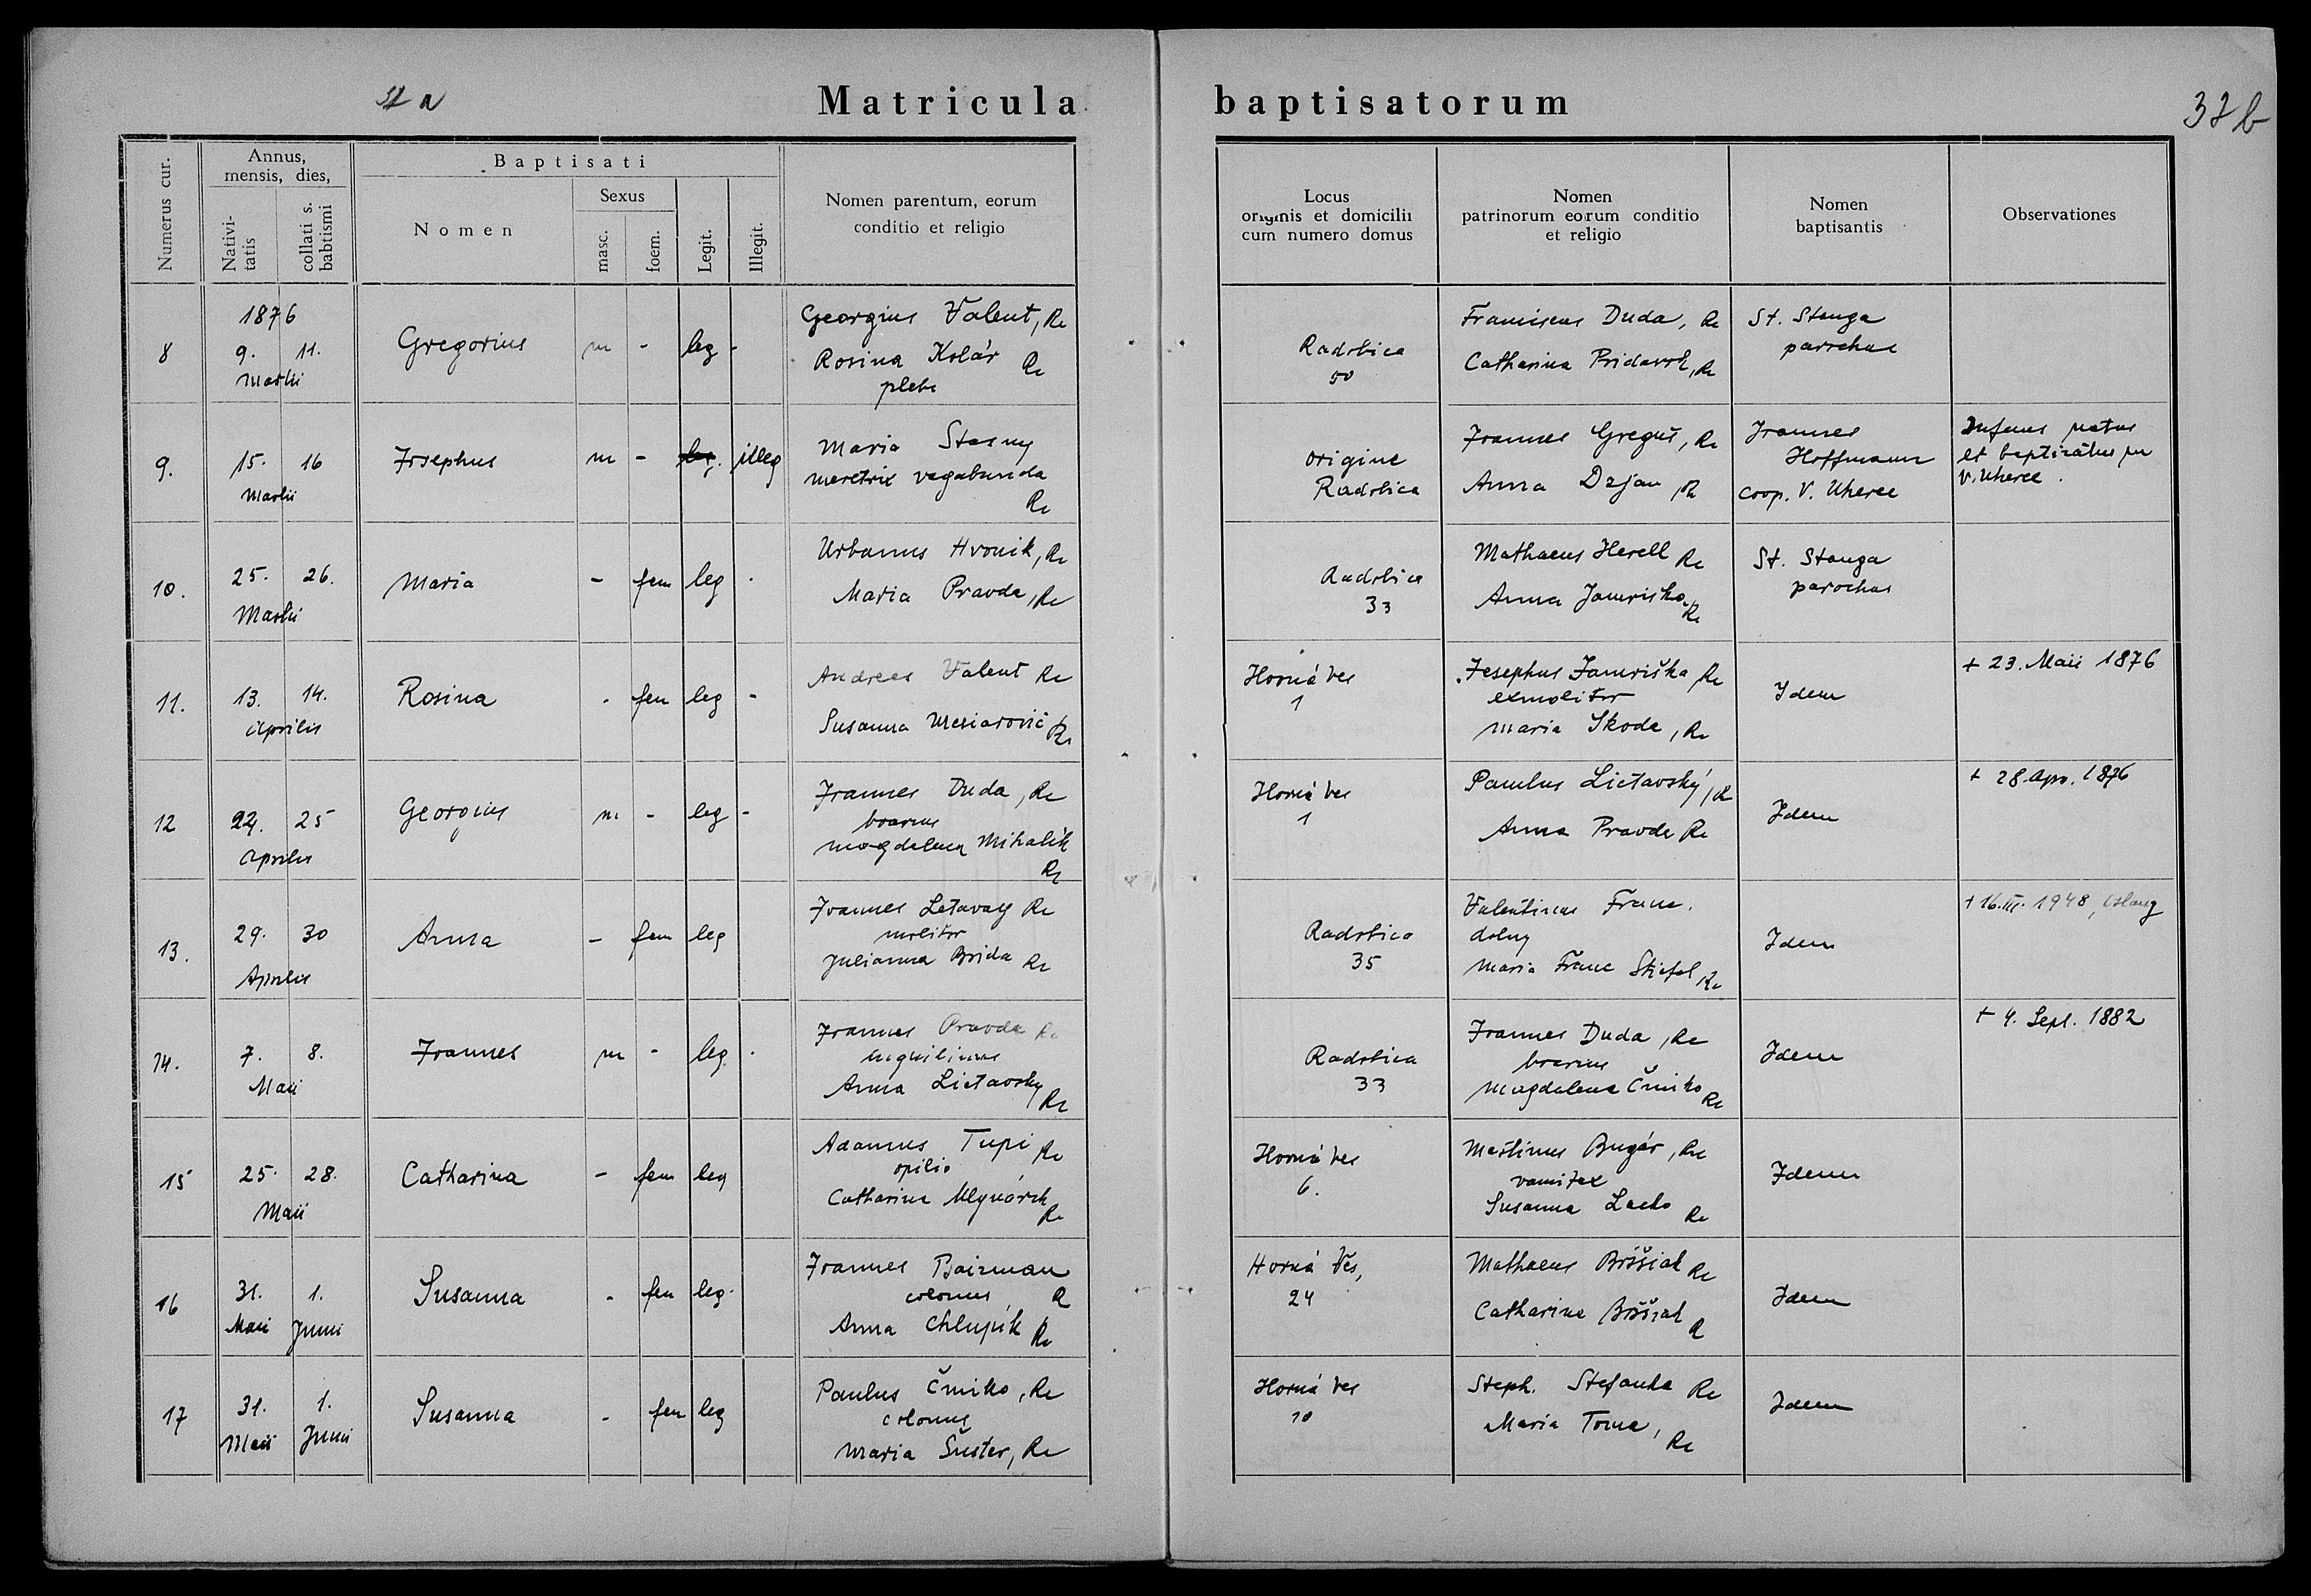 Matricula baptisatorum
32 b
Numerus cur.
Annus, mensis, dies,
Nativitatis
collati s. babtismi
Baptisati
Nomen
Sexus
masc.
foem.
Legit.
Illegit.
Nomen parentum, eorum conditio et religio
Locus originis et domicilii cum numero domus
Nomen patrinorum eorum conditio et religio
Nomen baptisantis
Observationes
1876
8 9. 11. Martii Gregorius m - leg -
Georgius Valent, Rc
Rosina Kolár Rc
plebs
Radobica
50
Franciscus Duda, Rc
Catharina Pridavok, Rc
St. Stanga
parochus
9. 15. 16 Martii Josephus m - leg. illeg
Maria Stasny
meretrix vagabunda
Rc
origine
Radobica
Joannes Greguš, Rc
Anna Dzjan, Rc
Joannes
Hoffmann
coop. V. Uherec
Infans natus
et baptizatus in
V. Uherec.
10. 25. 26. Martii Maria - fem leg -
Urbanus Hronik, Rc
Maria Pravda, Rc
Radobica
33
Mathaeus Herell Rc
Anna Jamriško, Rc
St. Stanga
parochus
11. 13. 14. Aprilis Rosina - fem leg -
Andreas Valent Rc
Susanna Mesiarovič Rc
Horná Ves
1
Josephus Jamriška Rc
exmolitor
Maria Skoda, Rc
Idem
+ 23. Maii 1876
12 24. 25 Aprilis Georgius m - leg -
Joannes Duda, Rc
boarius
Magdalena Mihalik
Rc
Horná Ves
1
Paulus Lietavský, Rc
Anna Pravda Rc
Idem
+ 28. Apr. 1876
13. 29. 30 Aprilis Anna - fem leg
Joannes Letavay Rc
molitor
Julianna Brida Rc
Radobica
35
Valentinus Franc.
dolny
Maria Franc Stiefel, Rc
Idem
+ 16. III. 1948, Oslany
14. 7. 8. Maii Joannes m - leg -
Joannes Pravda Rc
inquilinus
Anna Lietavsky
Rc
Radobica
33
Joannes Duda, Rc
boarius
Magdalena Čmiko
Rc
Idem
+ 4. Sept. 1882
15 25. 28. Maii Catharina - fem leg
Adamus Tupi Rc
opilio
Catharina Mlynárik
Rc
Horná Ves
6.
Martinus Bugár, Rc
Susanna Lacko Rc
Idem
16 31. Maii 1. Junii Susanna - fem leg
Joannes Baizman
colonus Rc
Anna Chlupik Rc
Horná Ves,
24
Mathaeus Bršiak Rc
Catharina Bršiak Rc
Idem
17 31. Maii 1. Junii Susanna - fem leg
Paulus Čmiko, Rc
colonus
Maria Šuster, Rc
Horná Ves
10
Steph. Stefanka Rc
Maria Toma, Rc
Idem